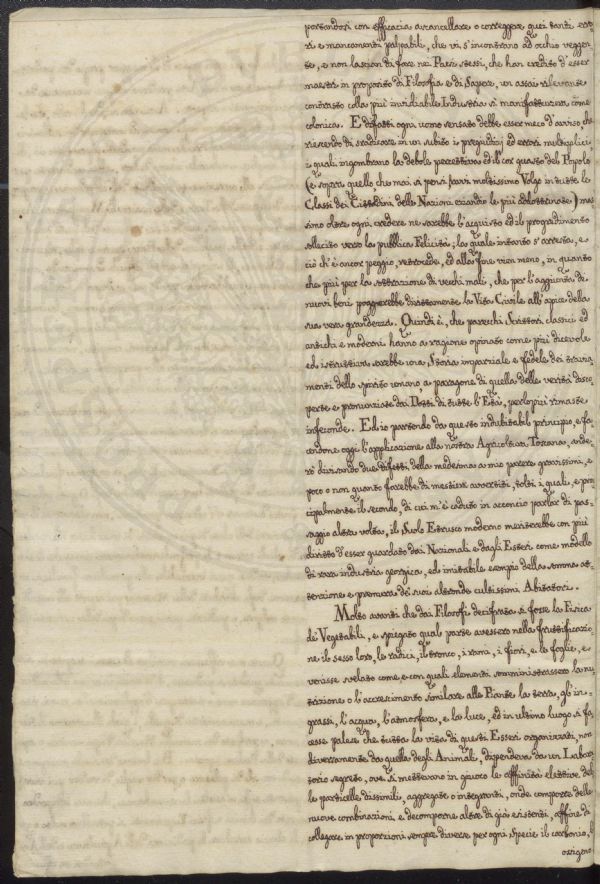 portandosi con efficacia a cancellare o correggere quei tanti erro
ri e mancamenti palpabili, che vi s'incontrano ad occhio veggen
te, e non lascian di fare nei Paesi stessi, che han credito d'esser
maestri in proposito di Filosofia e di Sapere, un assai rilevante
contrasto colla più invidiabile Industria sì manifatturiera come
colonica. E difatti ogni uomo sensato debbe esser meco d'avviso, che
riescendo di sradicare in un subito i pregiudizj ed errori multiplici,
i quali ingombrano la debole percettiva ed il cor guasto del Popolo
(e sopra quello che mai si pensi havvi moltissimo Volgo in tutte le
Classi dei Cittadini delle Nazioni eziandio le più addottrinate) mas
simo oltre ogni credere ne sarebbe l'acquisto ed il progredimento
sollecito verso la pubblica Felicità; la quale intanto s'arresta, e
ciò ch'è ancor peggio, retrocede, ed alla fine vien meno, in quanto
che più per la sottrazione di vecchi mali, che per l'aggiunta di
nuovi beni poggerebbe direttamente la Vita Civile all'apice della
sua vera grandezza. Quindi è, che parecchi Scrittori classici ed
antichi e moderni hanno a ragione opinato come più dicevole
ed istruttiva sarebbe una Storia imparziale e fedele dei travia
menti dello spirito umano, a paragone di quella delle verità disco
perte e pronunziate dai Dotti di tutte l'Età, per lo più rimaste
infeconde. Ed io partendo da questo indubitabil principio, e fa
cendone oggi l'applicazione alla nostra Agricoltura Toscana, ande
rò divisando due difetti della medesima a mio parere gravissimi, e
poco o non quanto farebbe di mestieri avvertiti, tolti i quali, e prin
cipalmente il secondo, di cui m'è caduto in acconcio parlar di pas
saggio altra volta, il Suolo Etrusco moderno meriterebbe con più
diritto d'esser guardato dai Nazionali e dagli Esteri come modello
di rara industria georgica, ed imitabile esempio della somma at
tenzione e premura de' suoi altronde cultissimi Abitatori.
Molto avanti che dai Filosofi decifrata si fosse la Fisica
de' Vegetabili, e spiegato qual parte avessero nella fruttificazio
ne il sesso loro, le radici, il tronco, i rami, i fiori, e le foglie, e
venisse svelato come e con quali elementi somministrassero la nu
trizione o l'accrescimento similare alle Piante la terra, gl'in
grassi, l'acqua, l'atmosfera, e la luce, ed in ultimo luogo si fa
cesse palese che tutta la vita di questi Esseri organizzati, non
diversamente da quella degli Animali, dipendeva da un Labora
torio segreto, ove si mettevano in giuoco le affinità elettive del
le particelle dissimili, aggregate o integranti, onde comporre delle
nuove combinazioni e decomporne altre di già esistenti, affine di
collegare in proporzioni sempre diverse per ogni specie il carbonio, l'
ossigeno